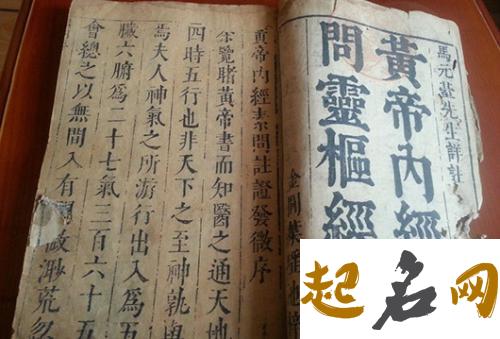 馬元臺先生詳註
黃帝內經
問靈樞經
金閶
黃帝內經素問註證發微序
余覽睹黃帝書而知醫之通天地
四時五行也非天下之至神孰
焉夫人神氣之所游行出入爲五
臟六腑爲二十七氣三百六十五
會總之以無間入有間荒忽
起名网